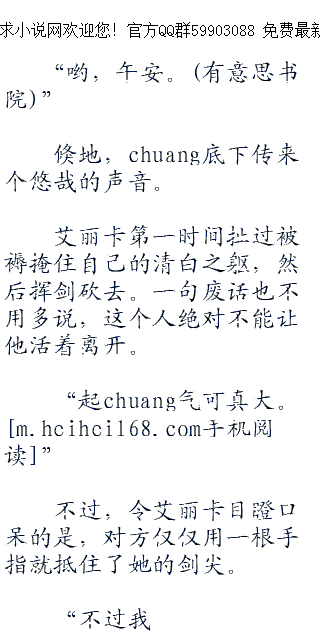 求小说网欢迎您! 官方QQ群59903088 免费最新
“哟，午安。(有意思书
院)”
倏地，chuang底下传来
个悠哉的声音。
艾丽卡第一时间扯过被
褥掩住自己的清白之躯，然
后挥剑砍去。一句废话也不
用多说，这个人绝对不能让
他活着离开。
“起chuang气可真大。
[m.hcihci168.com手机阅
读]”
不过，令艾丽卡目瞪口
呆的是，对方仅仅用一根手
指就抵住了她的剑尖。
“不过我